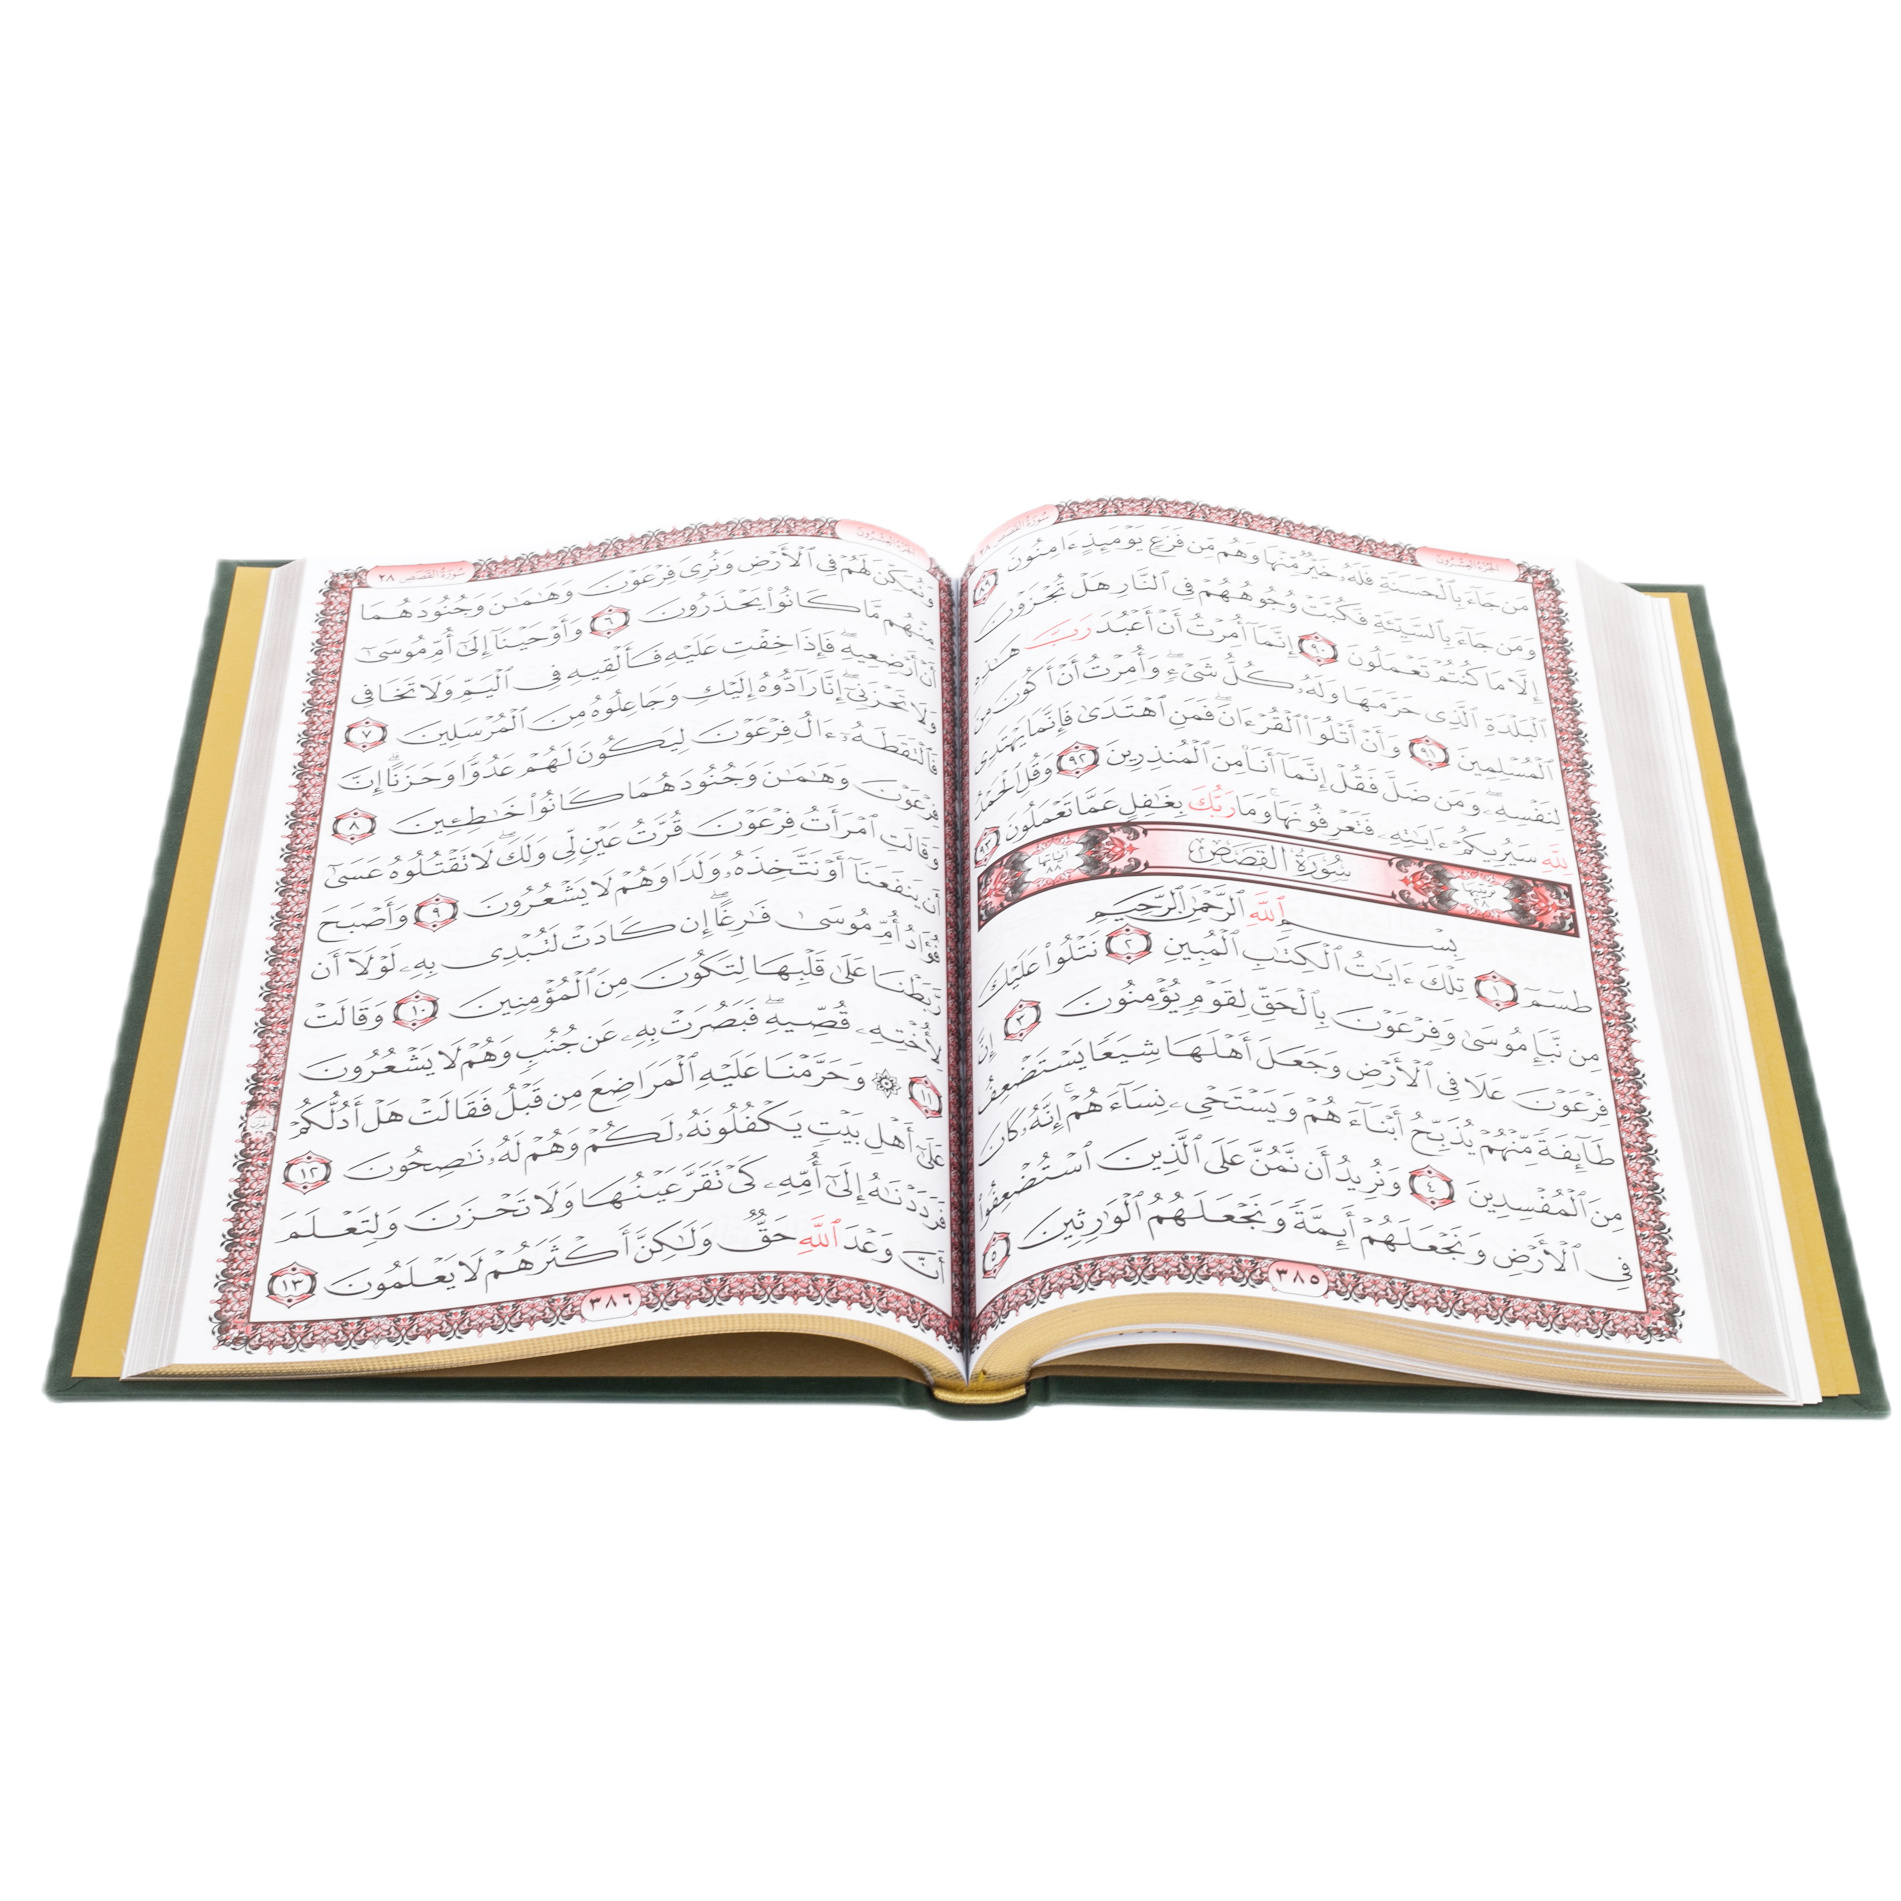 سُورَةُ القَصَص ٢٨
الجُزءُ العِشْرُون
مَن جَآءَ بِٱلْحَسَنَةِ فَلَهُۥ خَيْرٌ مِّنْهَا وَهُم مِّن فَزَعٍ يَوْمَئِذٍ ءَامِنُونَ ٨٩
وَمَن جَآءَ بِٱلسَّيِّئَةِ فَكُبَّتْ وُجُوهُهُمْ فِى ٱلنَّارِ هَلْ تُجْزَوْنَ
إِلَّا مَا كُنتُمْ تَعْمَلُونَ ٩٠ إِنَّمَآ أُمِرْتُ أَنْ أَعْبُدَ رَبَّ هَـٰذِهِ
ٱلْبَلْدَةِ ٱلَّذِى حَرَّمَهَا وَلَهُۥ كُلُّ شَىْءٍۖ وَأُمِرْتُ أَنْ أَكُونَ مِنَ
ٱلْمُسْلِمِينَ ٩١ وَأَنْ أَتْلُوَا۟ ٱلْقُرْءَانَۖ فَمَنِ ٱهْتَدَىٰ فَإِنَّمَا يَهْتَدِى
لِنَفْسِهِۦۖ وَمَن ضَلَّ فَقُلْ إِنَّمَآ أَنَا۠ مِنَ ٱلْمُنذِرِينَ ٩٢ وَقُلِ ٱلْحَمْدُ
لِلَّهِ سَيُرِيكُمْ ءَايَـٰتِهِۦ فَتَعْرِفُونَهَاۚ وَمَا رَبُّكَ بِغَـٰفِلٍ عَمَّا تَعْمَلُونَ ٩٣
ترتيبها ٢٨ سُورَةُ القَصَصِ آياتها ٨٨
بِسْمِ ٱللَّهِ ٱلرَّحْمَـٰنِ ٱلرَّحِيمِ
طسٓمٓ ١ تِلْكَ ءَايَـٰتُ ٱلْكِتَـٰبِ ٱلْمُبِينِ ٢ نَتْلُوا۟ عَلَيْكَ
مِن نَّبَإِ مُوسَىٰ وَفِرْعَوْنَ بِٱلْحَقِّ لِقَوْمٍ يُؤْمِنُونَ ٣ إِنَّ
فِرْعَوْنَ عَلَا فِى ٱلْأَرْضِ وَجَعَلَ أَهْلَهَا شِيَعًا يَسْتَضْعِفُ
طَآئِفَةً مِّنْهُمْ يُذَبِّحُ أَبْنَآءَهُمْ وَيَسْتَحْىِۦ نِسَآءَهُمْۚ إِنَّهُۥ كَانَ
مِنَ ٱلْمُفْسِدِينَ ٤ وَنُرِيدُ أَن نَّمُنَّ عَلَى ٱلَّذِينَ ٱسْتُضْعِفُوا۟
فِى ٱلْأَرْضِ وَنَجْعَلَهُمْ أَئِمَّةً وَنَجْعَلَهُمُ ٱلْوَٰرِثِينَ ٥
٣٨٥
الجُزءُ العِشْرُون
سُورَةُ القَصَص ٢٨
وَنُمَكِّنَ لَهُمْ فِى ٱلْأَرْضِ وَنُرِىَ فِرْعَوْنَ وَهَـٰمَـٰنَ وَجُنُودَهُمَا
مِنْهُم مَّا كَانُوا۟ يَحْذَرُونَ ٦ وَأَوْحَيْنَآ إِلَىٰٓ أُمِّ مُوسَىٰٓ
أَنْ أَرْضِعِيهِۖ فَإِذَا خِفْتِ عَلَيْهِ فَأَلْقِيهِ فِى ٱلْيَمِّ وَلَا تَخَافِى
وَلَا تَحْزَنِىٓۖ إِنَّا رَآدُّوهُ إِلَيْكِ وَجَاعِلُوهُ مِنَ ٱلْمُرْسَلِينَ ٧
فَٱلْتَقَطَهُۥٓ ءَالُ فِرْعَوْنَ لِيَكُونَ لَهُمْ عَدُوًّا وَحَزَنًاۗ إِنَّ
فِرْعَوْنَ وَهَـٰمَـٰنَ وَجُنُودَهُمَا كَانُوا۟ خَـٰطِـِٔينَ ٨
وَقَالَتِ ٱمْرَأَتُ فِرْعَوْنَ قُرَّتُ عَيْنٍ لِّى وَلَكَۖ لَا تَقْتُلُوهُ عَسَىٰٓ
أَن يَنفَعَنَآ أَوْ نَتَّخِذَهُۥ وَلَدًا وَهُمْ لَا يَشْعُرُونَ ٩ وَأَصْبَحَ
فُؤَادُ أُمِّ مُوسَىٰ فَـٰرِغًاۖ إِن كَادَتْ لَتُبْدِى بِهِۦ لَوْلَآ أَن
رَّبَطْنَا عَلَىٰ قَلْبِهَا لِتَكُونَ مِنَ ٱلْمُؤْمِنِينَ ١٠ وَقَالَتْ
لِأُخْتِهِۦ قُصِّيهِۖ فَبَصُرَتْ بِهِۦ عَن جُنُبٍ وَهُمْ لَا يَشْعُرُونَ
١١ ۞ وَحَرَّمْنَا عَلَيْهِ ٱلْمَرَاضِعَ مِن قَبْلُ فَقَالَتْ هَلْ أَدُلُّكُمْ
عَلَىٰٓ أَهْلِ بَيْتٍ يَكْفُلُونَهُۥ لَكُمْ وَهُمْ لَهُۥ نَـٰصِحُونَ ١٢
فَرَدَدْنَـٰهُ إِلَىٰٓ أُمِّهِۦ كَىْ تَقَرَّ عَيْنُهَا وَلَا تَحْزَنَ وَلِتَعْلَمَ
أَنَّ وَعْدَ ٱللَّهِ حَقٌّ وَلَـٰكِنَّ أَكْثَرَهُمْ لَا يَعْلَمُونَ ١٣
٣٨٦